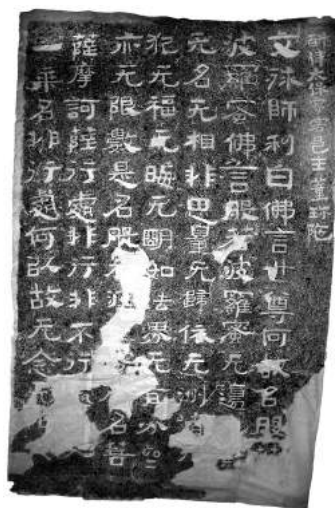 斛律太保家客邑主董珍陀
文殊師利白佛言世尊何故名般
波羅蜜佛言般若波羅蜜无邊
无名无相非思量无歸依无洲渚
犯无福无晦无明如法界无有分
亦无限數是名般若波名菩
薩摩訶薩行處非行非不行
一乘名非行處何以故无念